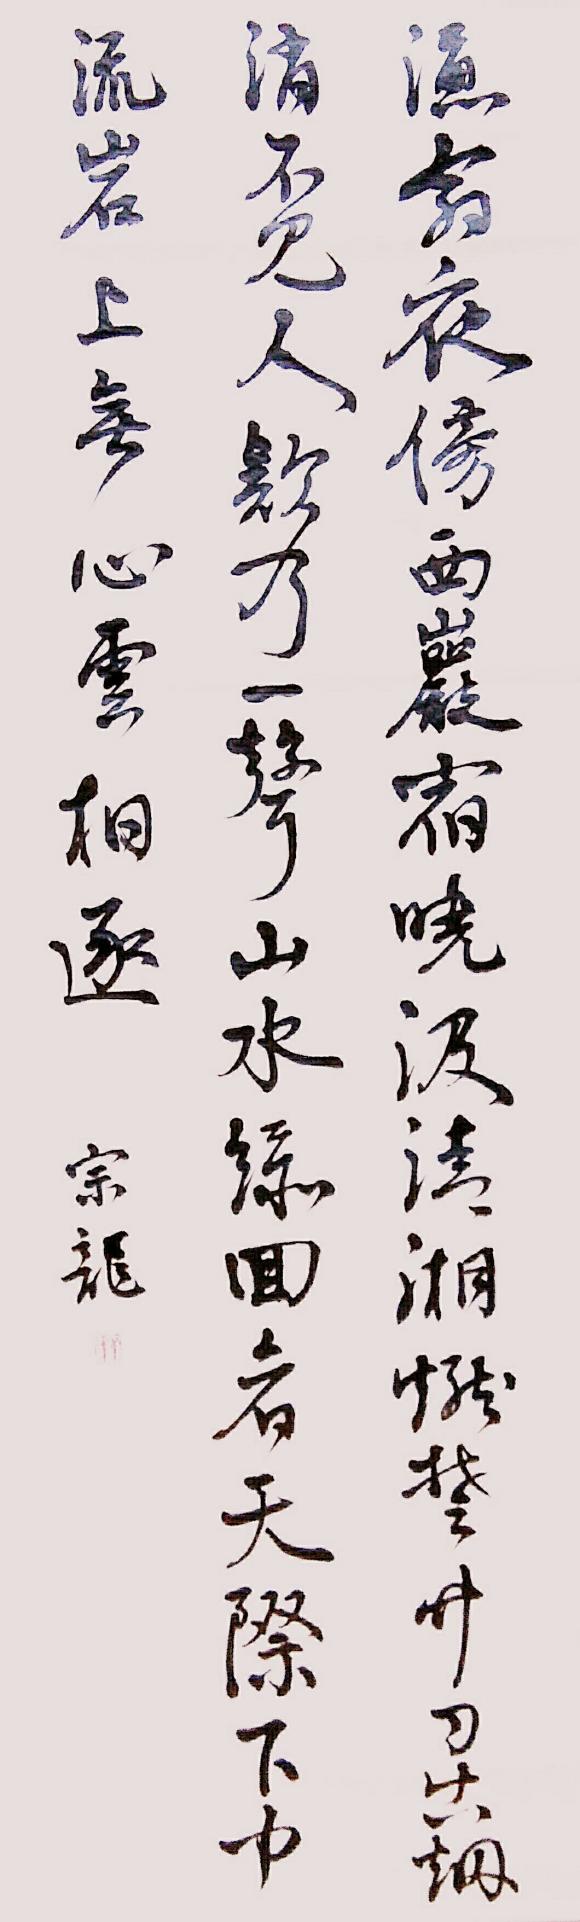 漁翁夜傍西巖宿曉汲清湘燃楚竹日出煙
消不見人欸乃一聲山水綠回看天際下中
流岩上無心雲相逐
宗龍